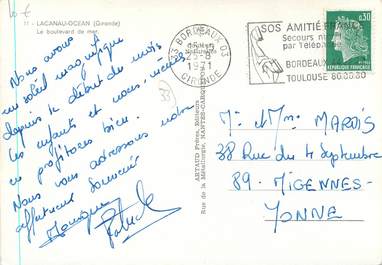 10 €
11 - LACANAU-OCEAN (Gironde)
Le boulevard de mer
Nous avons
un soleil magnifique
depuis le début du mois
les enfants et nous-mêmes
en profitons bien.
Nous vous adressons notre
affectueux souvenir
Monique Patrick
33
ARTAUD Frères, Éditeurs
Rue de la Métallurgie, NANTES-CARQUEFOU
BORDEAUX 03
1971
GIRONDE
SOS AMITIÉ FRANCE
Secours
par Télép
BORDEAUX
TOULOUSE 80.80.80
0,30
REPUBLIQUE FRANÇAISE
Mr et Mme MAROIS
38 Rue du 4 Septembre
89. MIGENNES-
YONNE